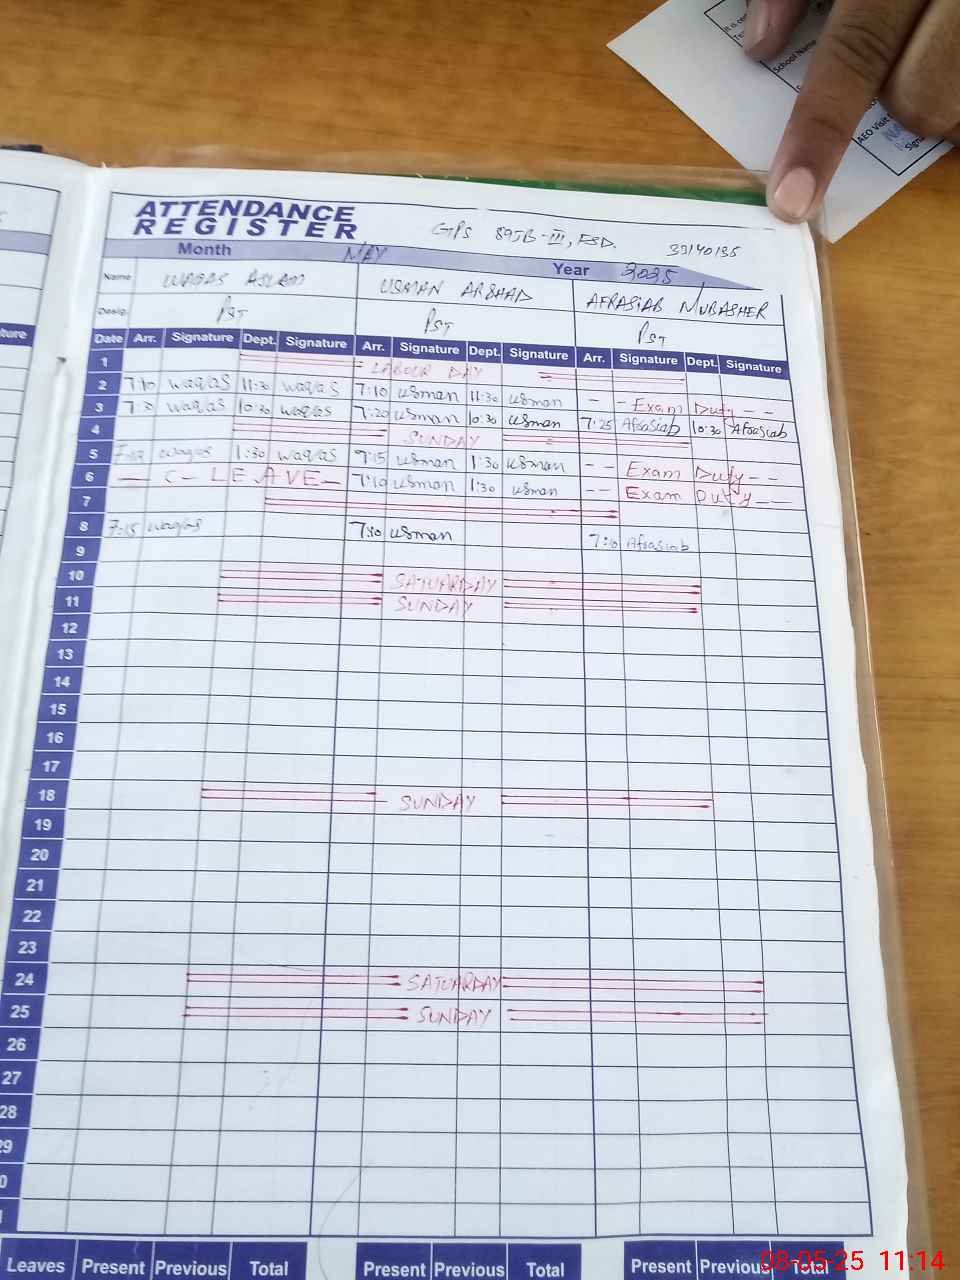 It is cer
Te
School Name
AEO Visit
Sign
ATTENDANCE
REGISTER
GPS 89JB-III, FSD. 33140135
Month MAY Year 2025
Name WAQAS ASLAM USMAN ARSHAD AFRASIAB MUBASHER
Desig. PST PST PST
ture
Date Arr. Signature Dept. Signature Arr. Signature Dept. Signature Arr. Signature Dept. Signature
1 LABOUR DAY
2 7:10 waqas 11:30 waqas 7:10 usman 11:30 usman - - Exam Duty - -
3 7:30 waqas 10:30 waqas 7:20 usman 10:30 usman 7:25 Afrasiab 10:30 Afrasiab
4 SUNDAY
5 waqas 1:30 waqas 7:15 usman 1:30 usman - - Exam Duty - -
6 — C - LEAVE — 7:10 usman 1:30 usman - - Exam Duty - -
7
8 7:15 waqas 7:10 usman 7:10 Afrasiab
9
10 SATUARDAY
11 SUNDAY
12
13
14
15
16
17
18 SUNDAY
19
20
21
22
23
24 SATUARDAY
25 SUNDAY
26
27
28
29
0
Leaves Present Previous Total Present Previous Total Present Previous Total
08-05-25 11:14